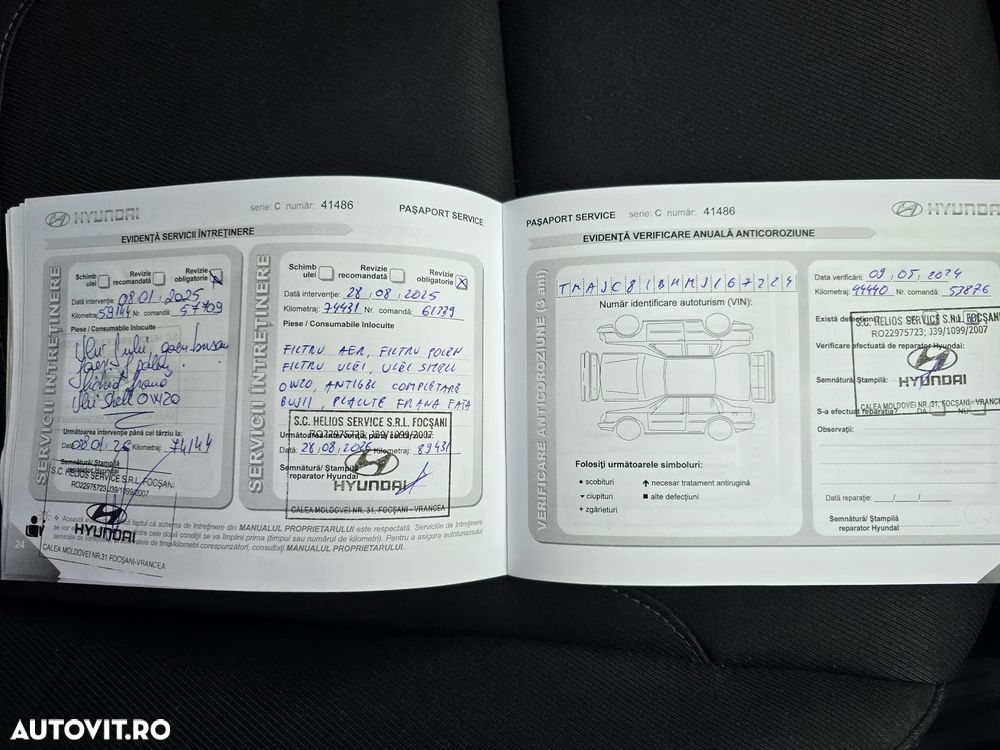 HYUNDAI
serie: C număr: 41486
PAȘAPORT SERVICE
EVIDENȚĂ SERVICII ÎNTREȚINERE
SERVICII ÎNTREȚINERE
Schimb ulei
Revizie recomandată
Revizie obligatorie
Data intervenție: 08.01.2025
Kilometraj: 59144 Nr. comandă: 57709
Piese / Consumabile inlocuite
Ulei Shell 0W20
Următoarea intervenție până cel târziu la:
Data: 08.01.26 Kilometraj: 74144
Semnătură/ Ștampilă
reparator Hyundai
S.C. HELIOS SERVICE S.R.L. FOCȘANI
RO22975723, J39/1099/2007
HYUNDAI
CALEA MOLDOVEI NR.31 FOCȘANI-VRANCEA
SERVICII ÎNTREȚINERE
Schimb ulei
Revizie recomandată
Revizie obligatorie
Dată intervenție: 28.08.2025
Kilometraj: 74431 Nr. comandă: 61339
Piese / Consumabile inlocuite
FILTRU AER, FILTRU POLEN
FILTRU ULEI, ULEI SHELL
0W20, ANTIGEL COMPLETARE
BUJII, PLACUTE FRANA FATA
S.C. HELIOS SERVICE S.R.L. FOCȘANI
RO22975723; J39/1099/2007
Data: 28.08.2026 Kilometraj: 89431
Semnătură/ Ștampilă
reparator Hyundai
HYUNDAI
CALEA MOLDOVEI NR. 31, FOCȘANI - VRANCEA
MANUALUL PROPRIETARULUI este respectată. Serviciile de întreținere
consultați MANUALUL PROPRIETARULUI.
24
PAȘAPORT SERVICE
serie: C număr: 41486
HYUNDAI
EVIDENȚĂ VERIFICARE ANUALĂ ANTICOROZIUNE
VERIFICARE ANTICOROZIUNE (3 ani)
TMAJC81BHMJ167224
Număr identificare autoturism (VIN):
Folosiți următoarele simboluri:
scobituri
ciupituri
+ zgârieturi
necesar tratament antirugină
alte defecțiuni
Data verificării: 09.05.2024
Kilometraj: 44440 Nr. comandă: 53876
Există defecțiuni?
S.C. HELIOS SERVICE S.R.L. FOCȘANI
RO22975723; J39/1099/2007
Verificare efectuată de reparator Hyundai:
HYUNDAI
Semnătură/ Ștampilă:
CALEA MOLDOVEI NR. 31, FOCȘANI-VRANCEA
S-a efectuat reparația? DA NU
Observații:
Data reparație:
Semnătură/ Ștampilă
reparator Hyundai
AUTOVIT.RO